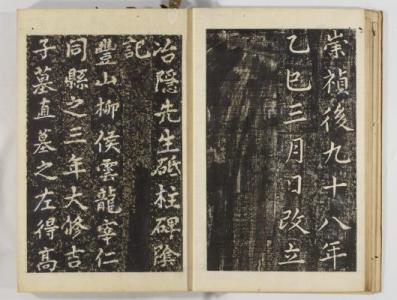 崇禎後九十八年
乙巳三月日改立
冶隱先生砥柱碑陰
記
豐山柳侯雲龍宰仁
同縣之三年大修吉
子墓直墓之左得高